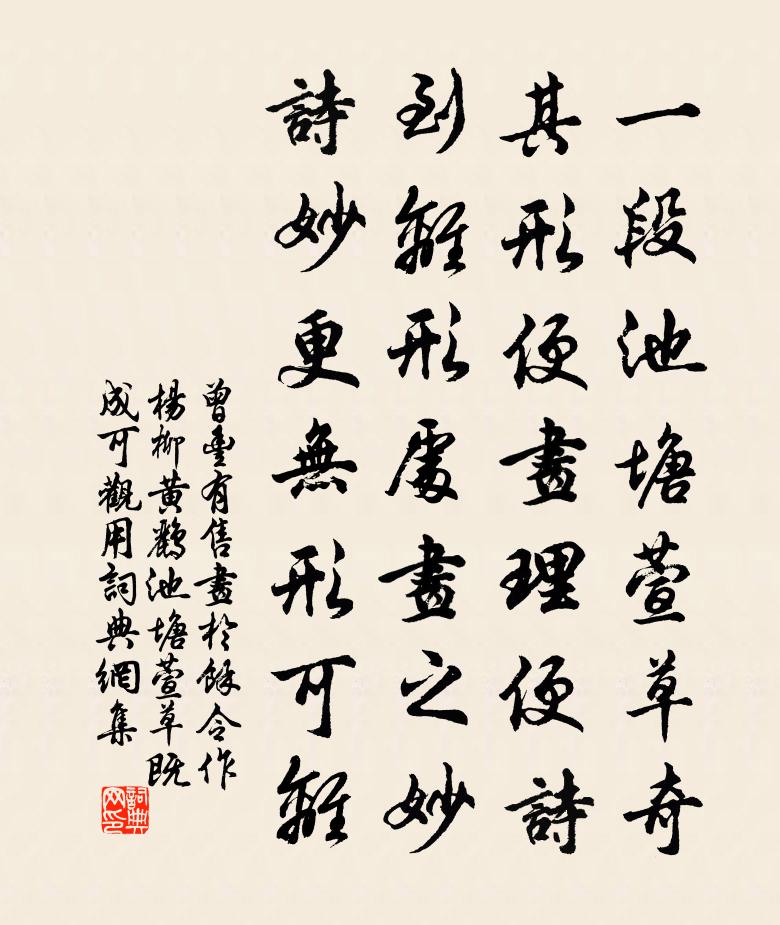 一段池塘萱草奇
其形便畫理便詩
到離形處畫之妙
詩妙更無形可離
曾豐有售畫於餘令作
楊柳黃鸝池塘萱草既
成可觀用詞典網集
詞典
网印